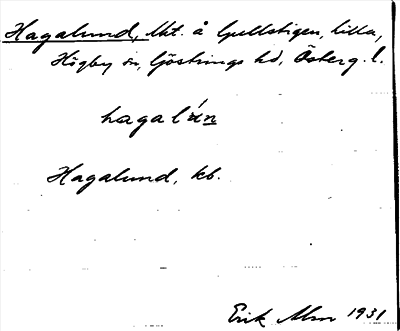 Hagalund, lht. å Gullstigen, lilla,
Högby sn, Göstrings hd, Österg. l.
hagalún
Hagalund, kb.
Erik Alm 1931